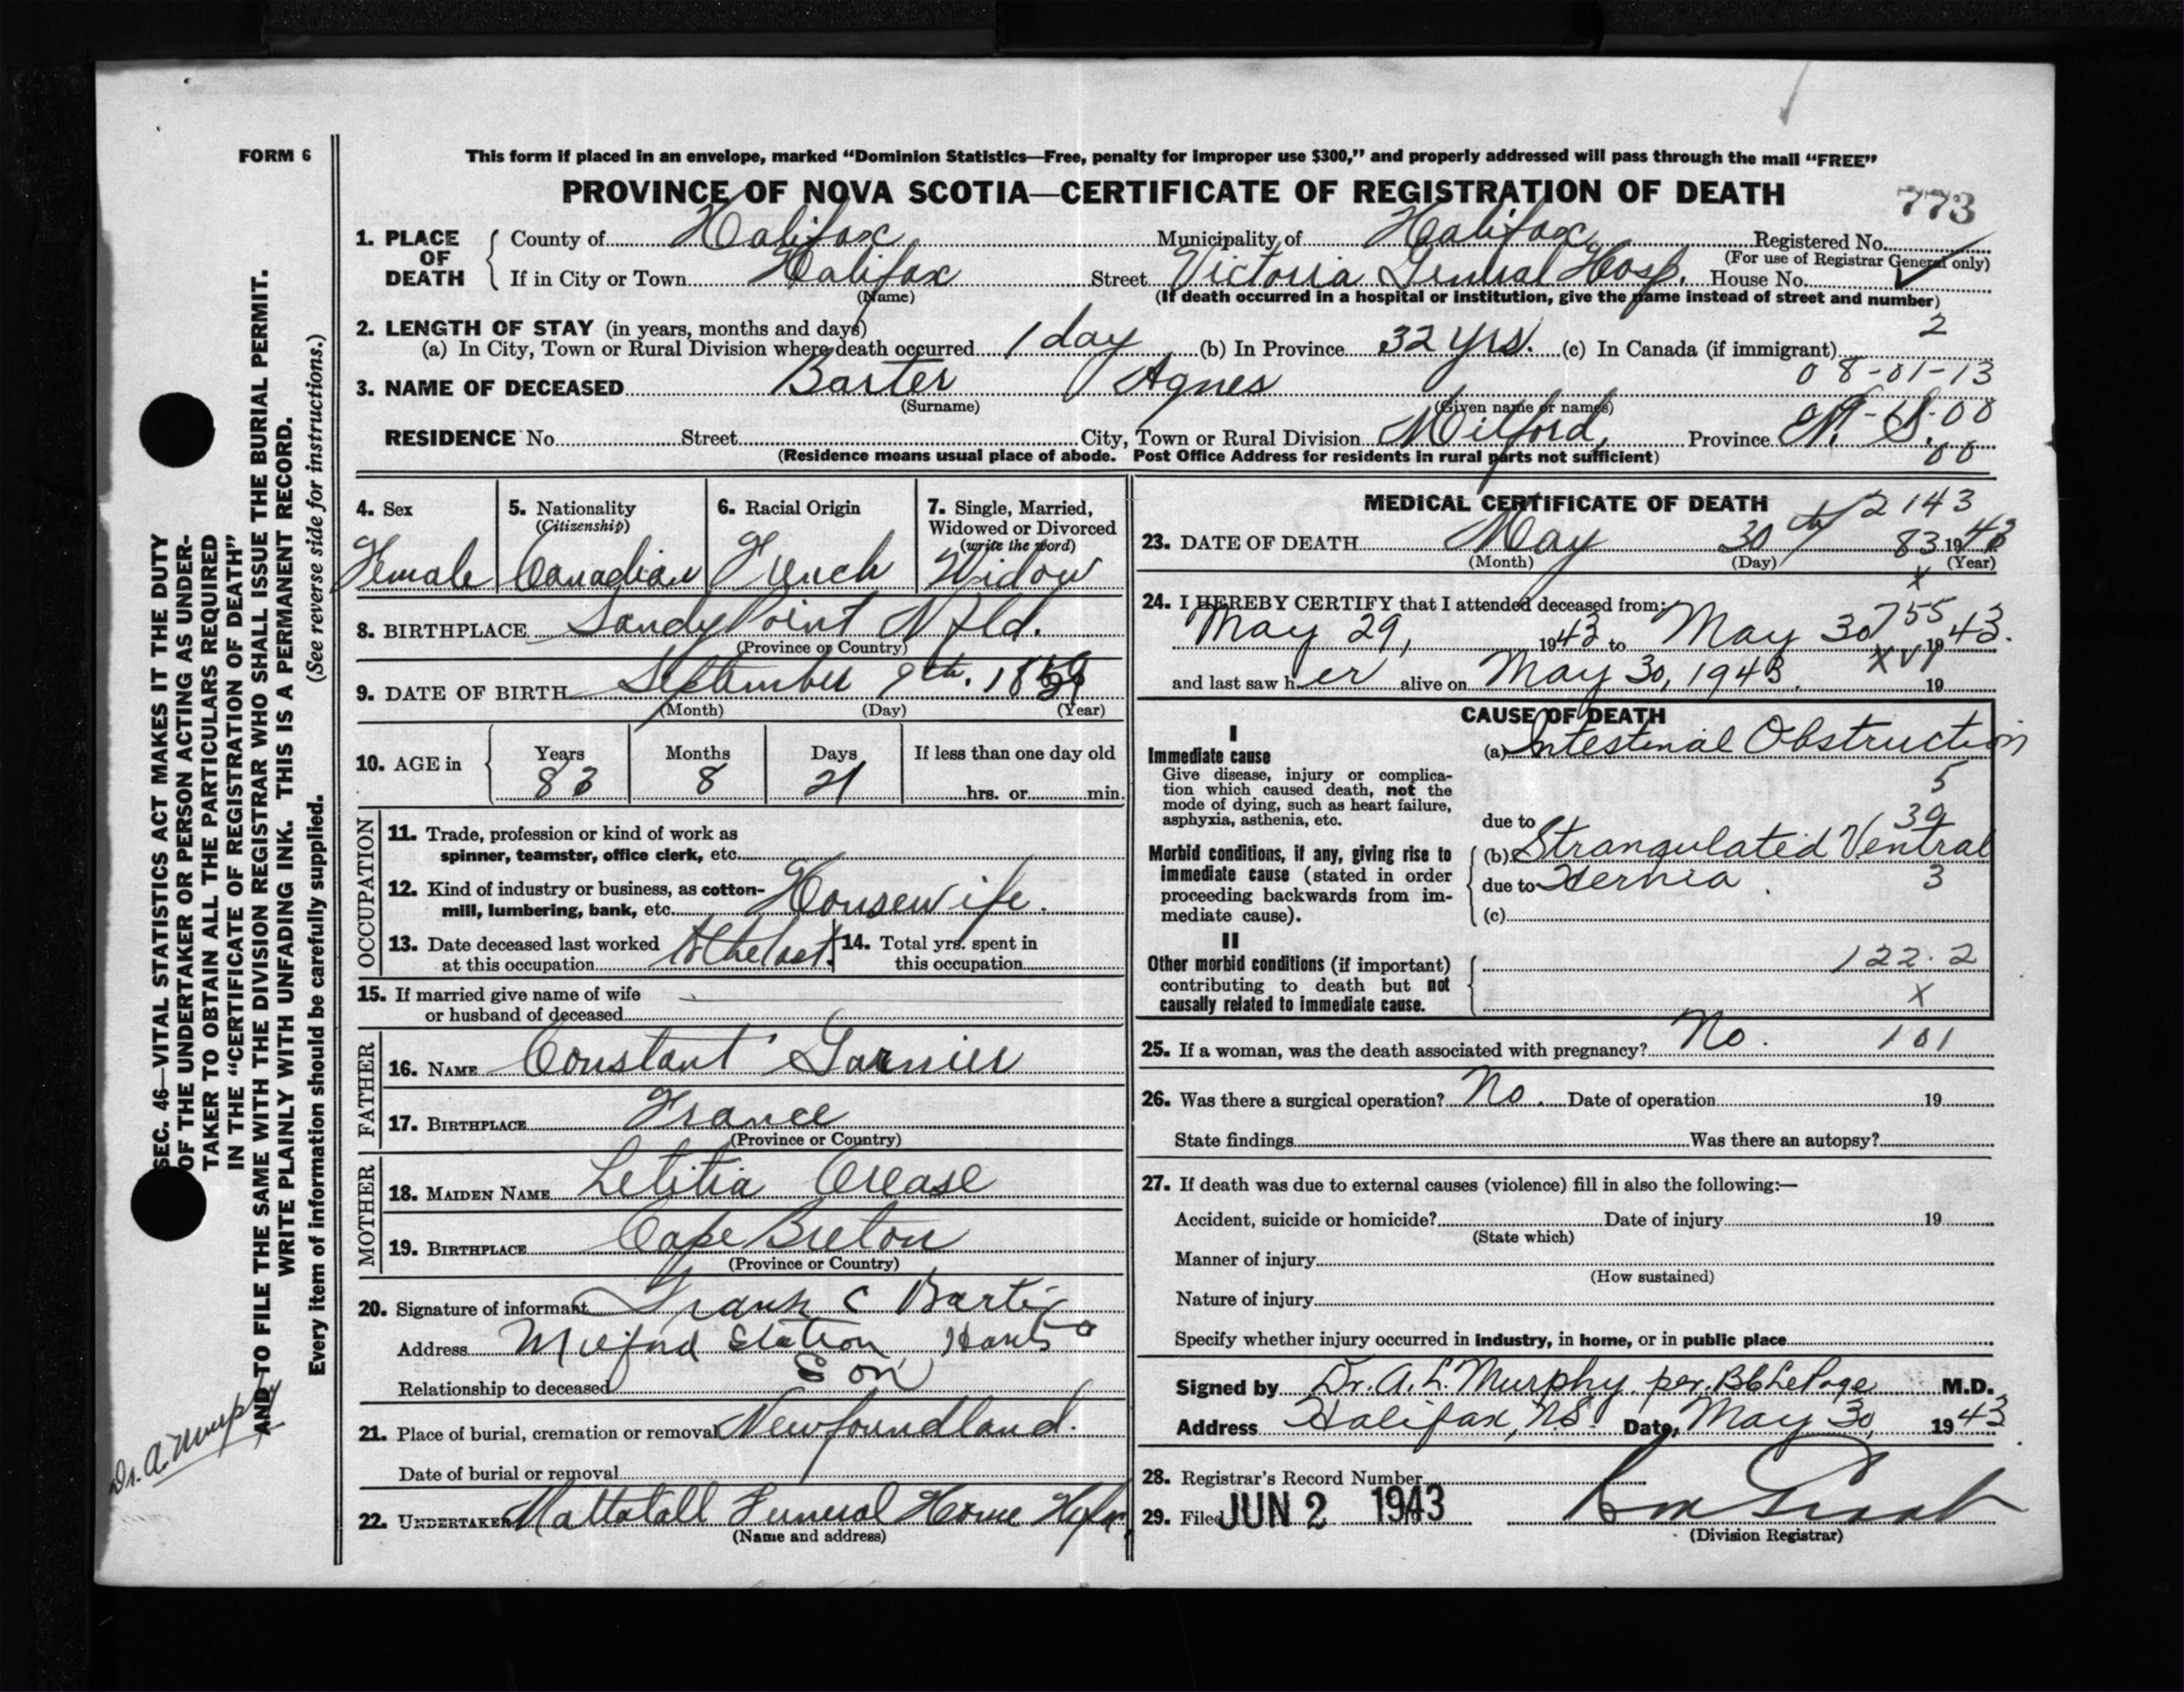 FORM 6
This form if placed in an envelope, marked “Dominion Statistics—Free, penalty for improper use $300,” and properly addressed will pass through the mail “FREE”
PROVINCE OF NOVA SCOTIA—CERTIFICATE OF REGISTRATION OF DEATH
773
1. PLACE OF DEATH County of Halifax Municipality of Halifax Registered No.
(For use of Registrar General only)
If in City or Town Halifax Street Victoria General Hosp. House No.
(Name) (If death occurred in a hospital or institution, give the name instead of street and number)
2. LENGTH OF STAY (in years, months and days) 2
(a) In City, Town or Rural Division where death occurred 1 day (b) In Province 32 yrs. (c) In Canada (if immigrant)
08-01-13
3. NAME OF DECEASED Barter Agnes
(Surname) (Given name or names)
RESIDENCE No. Street City, Town or Rural Division Milford, Province N. S. 00
(Residence means usual place of abode. Post Office Address for residents in rural parts not sufficient) 00
4. Sex Female
5. Nationality (Citizenship) Canadian
6. Racial Origin French
7. Single, Married, Widowed or Divorced (write the word) Widow
8. BIRTHPLACE Sandy Point Nfld.
(Province or Country)
9. DATE OF BIRTH September 9th. 18
(Month) (Day) (Year)
10. AGE in Years 83 Months 8 Days 21 If less than one day old hrs. or min.
OCCUPATION
11. Trade, profession or kind of work as spinner, teamster, office clerk, etc.
12. Kind of industry or business, as cotton-mill, lumbering, bank, etc. Housewife.
13. Date deceased last worked at this occupation to the last. 14. Total yrs. spent in this occupation
15. If married give name of wife or husband of deceased
FATHER
16. NAME Constant Garnier
17. BIRTHPLACE France
(Province or Country)
MOTHER
18. MAIDEN NAME Letitia Crease
19. BIRTHPLACE Cape Breton
(Province or Country)
20. Signature of informant Frank C Barter
Address Milford Station Hants Co
Relationship to deceased Son
21. Place of burial, cremation or removal Newfoundland.
Date of burial or removal
22. UNDERTAKER Mattatall Funeral Home Hfx.
(Name and address)
MEDICAL CERTIFICATE OF DEATH
2143
23. DATE OF DEATH May 30th 83 1943
(Month) (Day) (Year)
x
24. I HEREBY CERTIFY that I attended deceased from:
755
May 29, 1943 to May 30 1943.
XVI
and last saw her alive on May 30, 1943. 19
CAUSE OF DEATH
I
Immediate cause (a) Intestinal Obstruction
Give disease, injury or complication which caused death, not the mode of dying, such as heart failure, asphyxia, asthenia, etc.
5
39
due to
Morbid conditions, if any, giving rise to immediate cause (stated in order proceeding backwards from immediate cause).
(b) Strangulated Ventral
due to Hernia. 3
(c)
II
Other morbid conditions (if important) contributing to death but not causally related to immediate cause.
122.2
x
25. If a woman, was the death associated with pregnancy? No. 101
26. Was there a surgical operation? No. Date of operation 19
State findings Was there an autopsy?
27. If death was due to external causes (violence) fill in also the following:—
Accident, suicide or homicide? Date of injury 19
(State which)
Manner of injury
(How sustained)
Nature of injury
Specify whether injury occurred in industry, in home, or in public place
Signed by Dr. A. L. Murphy. per. LePage M.D.
Address Halifax, N.S. Date, May 30, 1943
28. Registrar's Record Number
29. Filed JUN 2 1943
(Division Registrar)
SEC. 46—VITAL STATISTICS ACT MAKES IT THE DUTY
OF THE UNDERTAKER OR PERSON ACTING AS UNDER-
TAKER TO OBTAIN ALL THE PARTICULARS REQUIRED
IN THE “CERTIFICATE OF REGISTRATION OF DEATH”
AND TO FILE THE SAME WITH THE DIVISION REGISTRAR WHO SHALL ISSUE THE BURIAL PERMIT.
WRITE PLAINLY WITH UNFADING INK. THIS IS A PERMANENT RECORD.
Every item of information should be carefully supplied. (See reverse side for instructions.)
Dr. A. Murphy